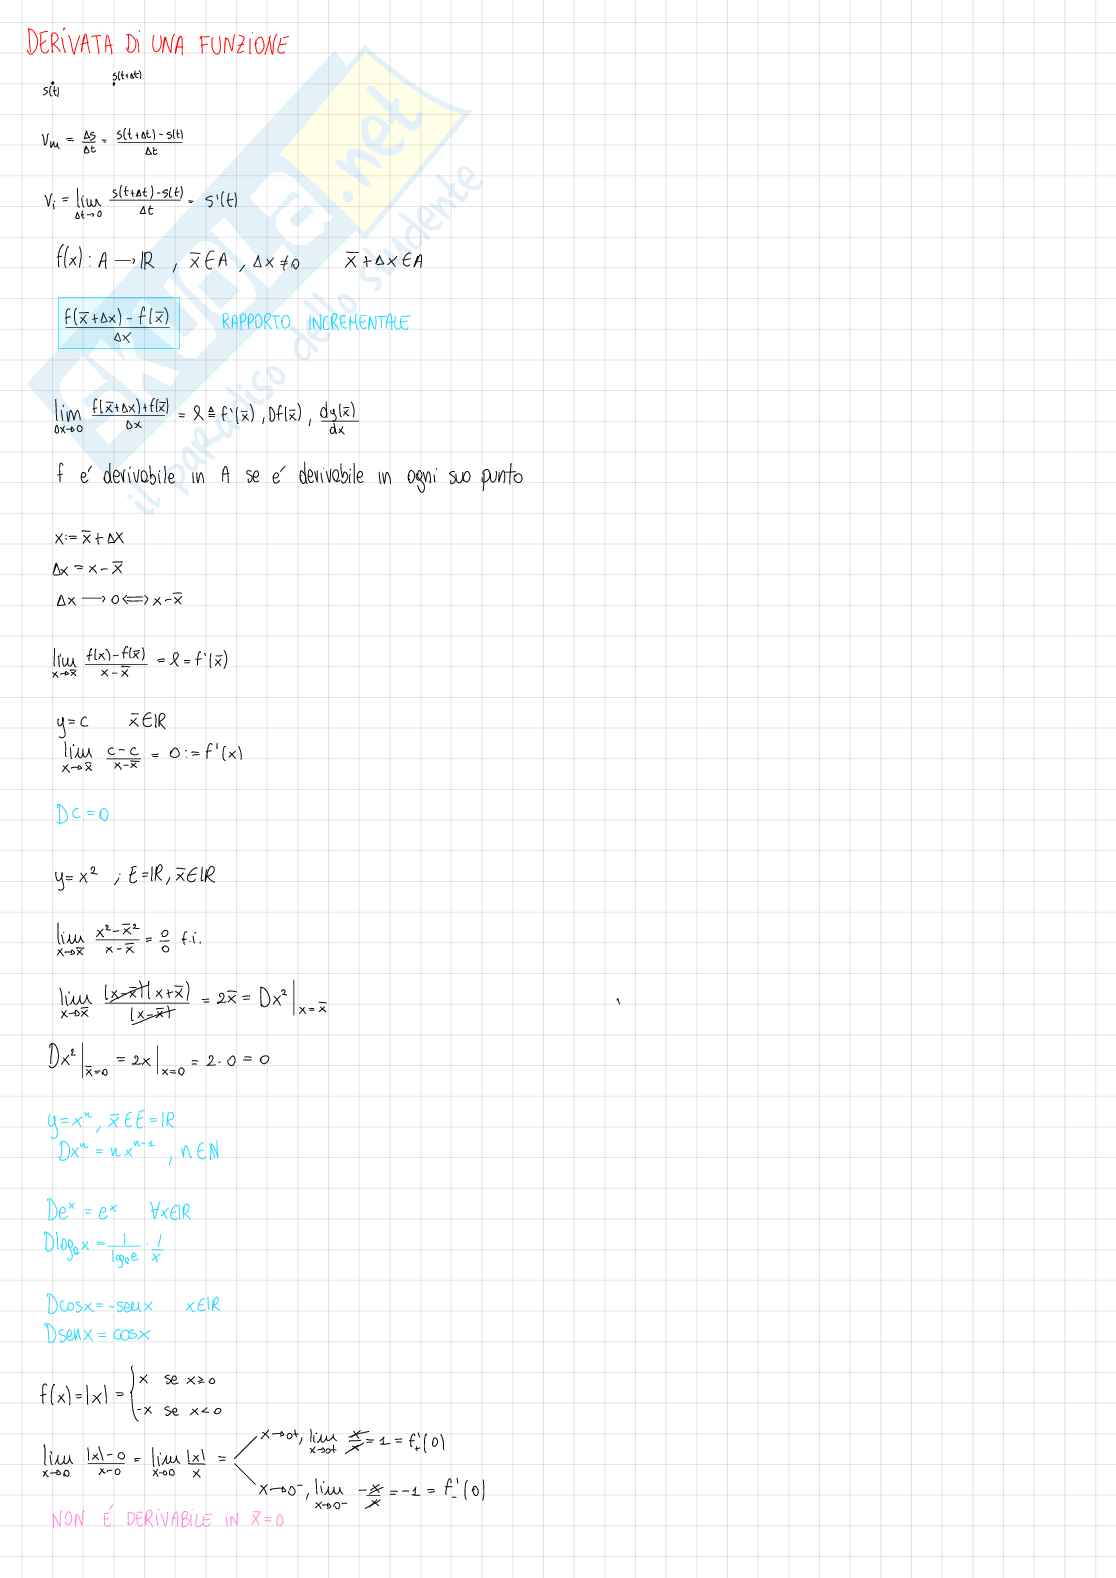 DERIVATA DI UNA FUNZIONE
s(t) s(t+Δt)
Vm = Δs/Δt = s(t+Δt)-s(t)/Δt
Vi = lim Δt→0 s(t+Δt)-s(t)/Δt = s'(t)
f(x): A → IR , x̄ ∈ A , Δx ≠ 0 x̄+Δx ∈ A
f(x̄+Δx)-f(x̄)/Δx RAPPORTO INCREMENTALE
lim Δx→0 f(x̄+Δx)+f(x̄)/Δx = l ≜ f'(x̄), Df(x̄), dy(x̄)/dx
f e' derivabile in A se e' derivabile in ogni suo punto
x:= x̄+Δx
Δx = x-x̄
Δx → 0 ⟺ x-x̄
lim x→x̄ f(x)-f(x̄)/x-x̄ = l = f'(x̄)
y=c x̄∈IR
lim x→x̄ c-c/x-x̄ = 0 := f'(x)
Dc=0
y=x² ; E=IR, x̄∈IR
lim x→x̄ x²-x̄²/x-x̄ = 0/0 f.i.
lim x→x̄ (x-x̄)(x+x̄)/(x-x̄) = 2x̄ = Dx²|x=x̄
Dx²|x̄=0 = 2x|x=0 = 2·0 = 0
y=xⁿ, x̄∈E=IR
Dxⁿ = nxⁿ⁻¹ , n∈ℕ
Deˣ = eˣ ∀x∈IR
Dcosx=-senx x∈IR
Dsenx=cosx
f(x)=|x|= { x se x≥0
-x se x<0
lim x→0 |x|-0/x-0 = lim x→0 |x|/x = x→0+, lim x→0+ x/x = 1 = f'₊(0)
x→0⁻, lim x→0⁻ -x/x = -1 = f'₋(0)
NON É DERIVABILE IN x̄=0
SKUOLA.net
il paradiso dello studente